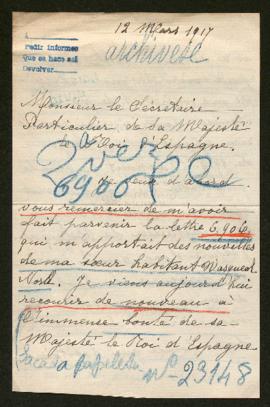 12 Mars 1917
Pedir informes
Que se haga asi
Devolver
archivese
Monsieur le Secrétaire
Particulier de Sa Majesté
Le Roi d'Espagne.
6906
Je veux d'abord
vous remercier de m'avoir
fait parvenir la lettre 6.906,
qui m'apportait des nouvelles
de ma sœur habitant Wasquehal
Nord. Je viens aujourd'hui
recourir de nouveau à
l'immense bonté de sa
Majesté le Roi d'Espagne
Sacada papeleta
Nº 23148